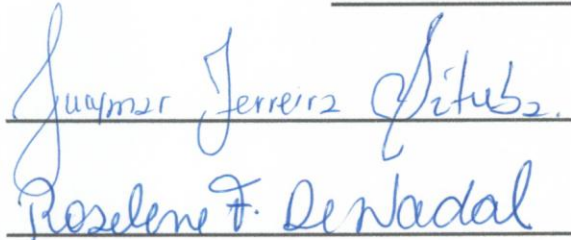 Ferreira Pituba.
Roselene F. De Nadal